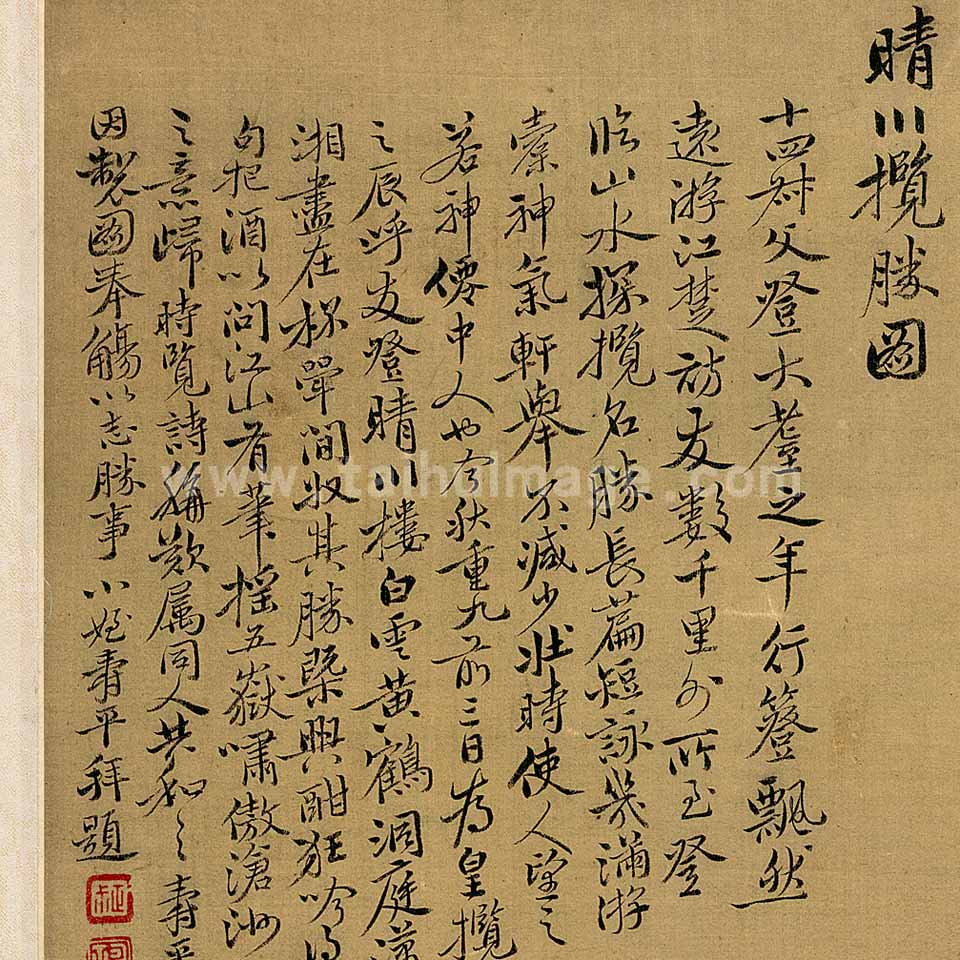 晴川攬勝圖
十四叔父登大耋之年行簦飄然
遠游江楚訪友數千里外所至登
臨山水探攬名勝長篇短詠裝滿游
橐神氣軒舉不減少壯時使人望之
若神僊中人也今秋重九前三日為皇攬
之辰呼友登晴川樓白雲黃鶴洞庭瀟
湘盡在杯斝間收其勝槩興酣狂吟得
句把酒以問江山有筆搖五嶽嘯傲滄洲
之意歸時覽詩稱歎属同人共和之壽平
因製圖奉觴以志勝事小姪壽平拜題
www.taihuimage.com